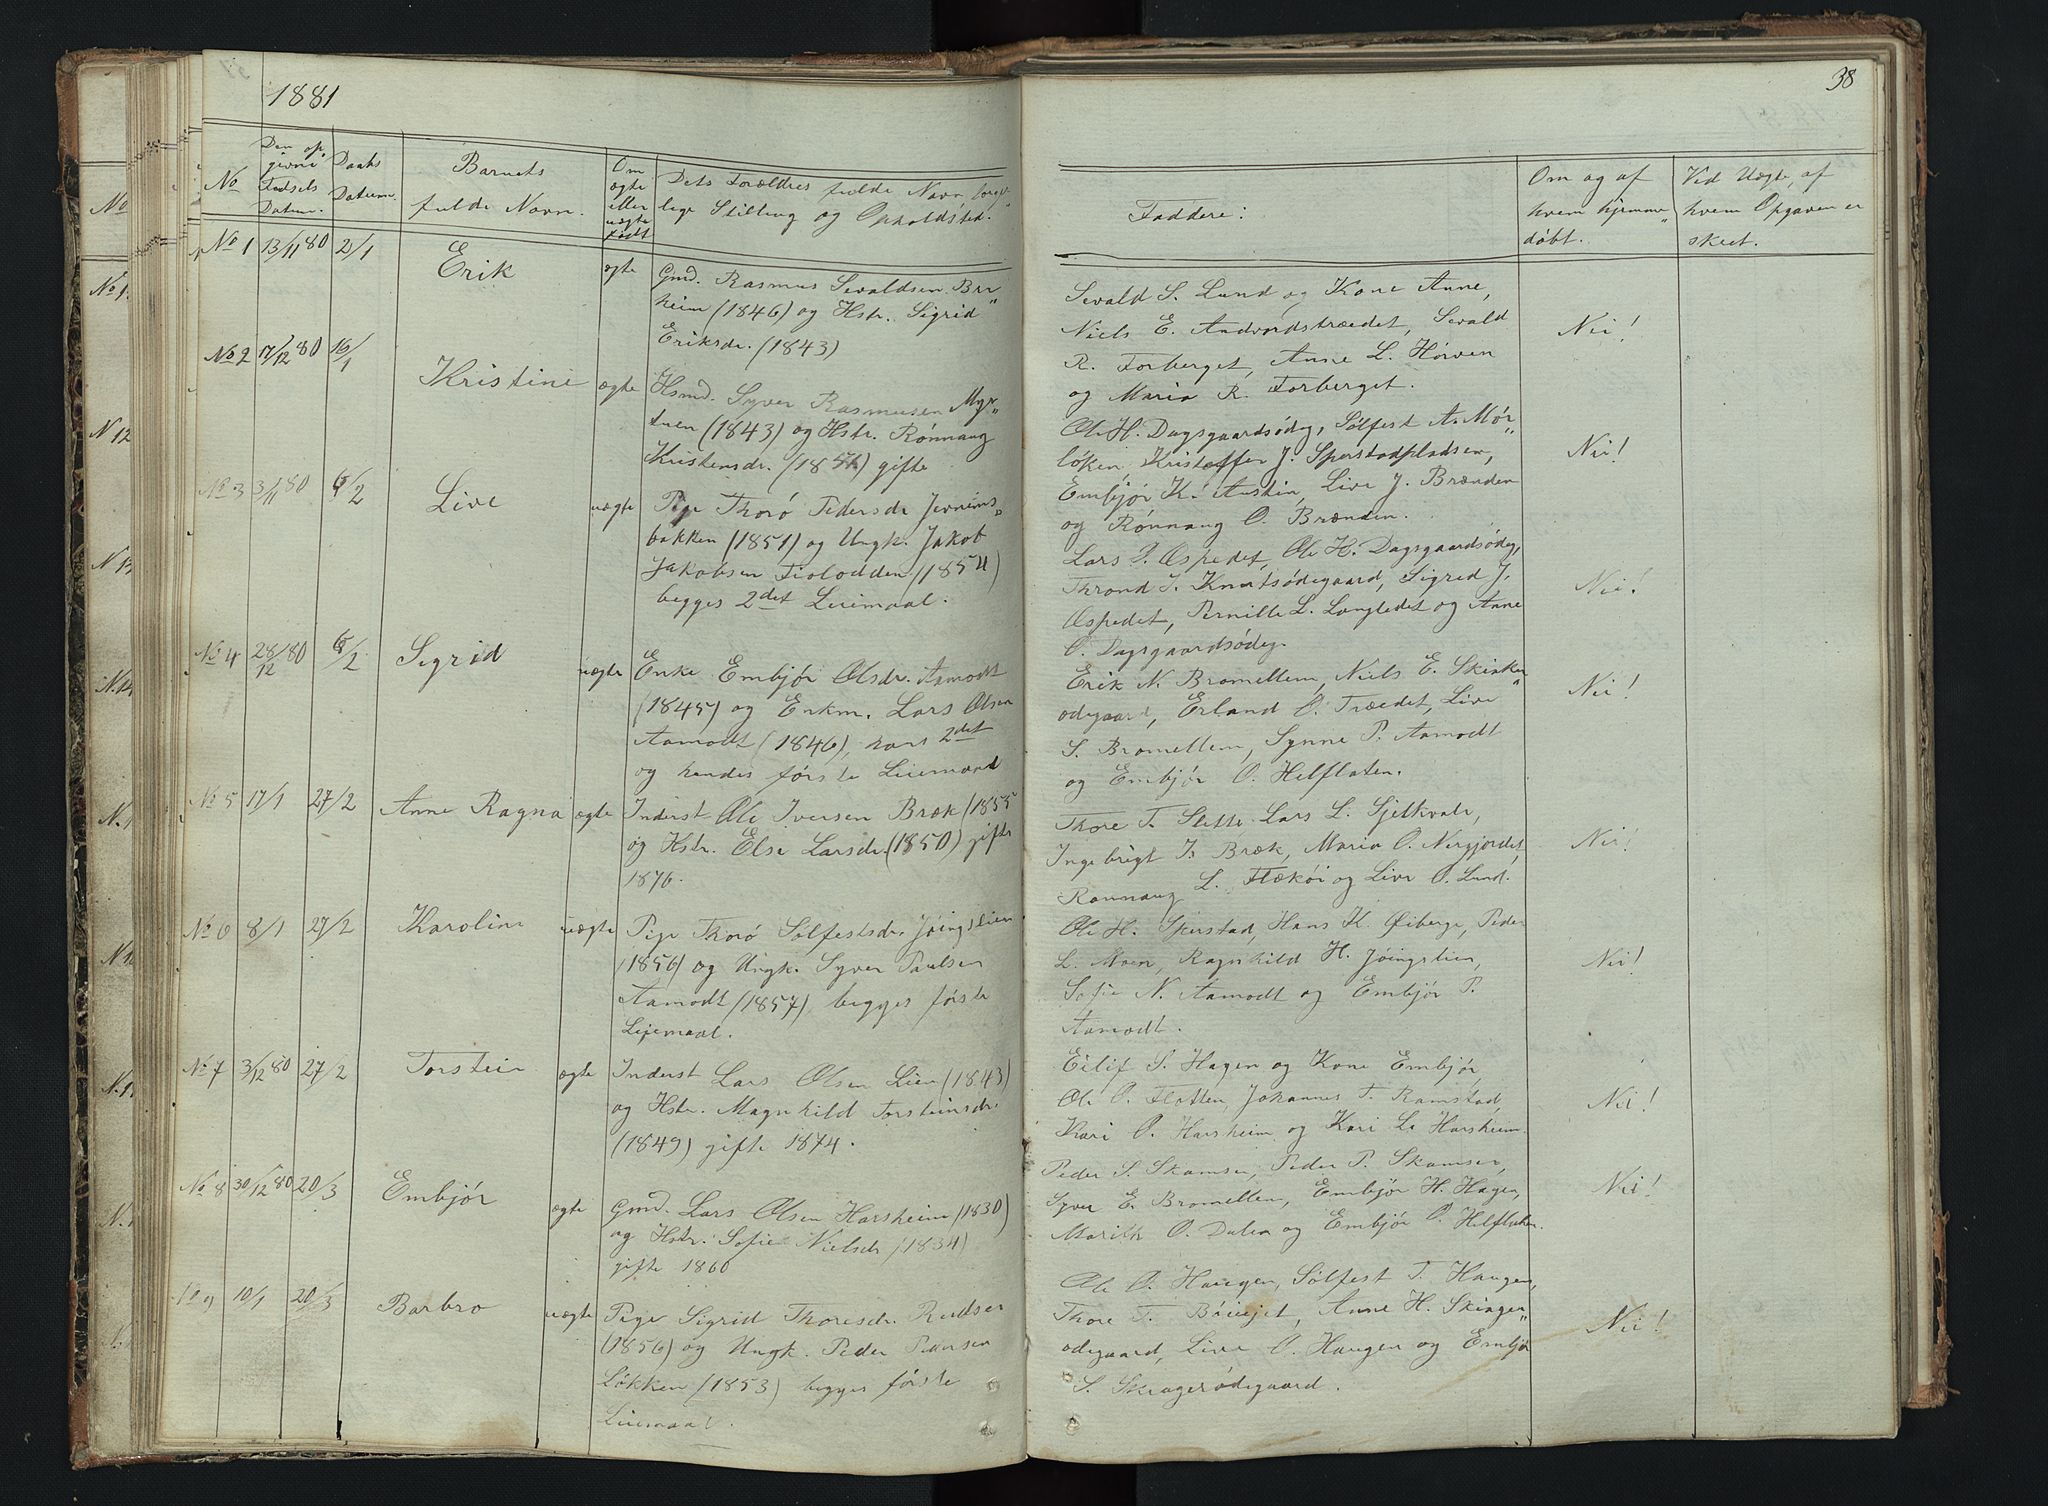 1881
38
No
Den op
givne
Fødsels
Datum.
Daabs
Datum.
Barnets
fulde Navn.
Om
ægte
eller
uægte
født
Dets Forældres fulde Navn, borger
lige Stilling og Opholdsted.
Faddere:
Om og af
hvem hjemme
døbt.
Ved Uægte, af
hvem Opgaven er
skeet.
No 1 13/11 80 2/1 Erik ægte Gmd. Rasmus Sevaldsen
heim (1846) og Hstr. Sigrid
Eriksdr. (1843)
Sevald S. Lund og Kone Anne,
Niels E. Andvordstræedet, Sevald
R. Forberget, Anne L. Hørven
og Maria R. Forberget.
Nei!
No 2 17/12 80 16/1 Kristine ægte Hsmd. Syver Rasmusen Myr
tuen (1843) og Hstr. Rønnaug
Kristensdr. gifte
Ole H. Dagsgaardsødeg, Sølfest A. Mør
løken, Kristoffer J. Sperstadpladsen,
Embjør K. Austin, Live J. Brænden
og Rønnaug O. Brænden.
Nei!
No 3 3/11 80 6/2 Live uægte Pige Thorø Pedersdr
bakken (1851) og Ungk. Jakob
Jakobsen Fiolodden (1854)
begges 2det Leiemaal.
Lars J. Øspedet, Ole H. Dagsgaardsødeg,
Thrond I. Knutsødegaard, Sigrid J.
Øspedet, Pernille L. Langledet og Anne
O. Dagsgaardsødeg.
Nei!
No 4 28/12 80 6/2 Sigrid uægte Enke Embjør Olsdr. Aamodt
(1845) og Enkm. Lars Olsen
Aamodt (1846), hans 2det
og hendes første Leiemaal
Erik N. Bromellem, Niels E. Skinker
odegaard, Erland O. Træedet, Live
S. Bromellem, Synne P. Aamodt
og Embjør O. Helflaten.
Nei!
No 5 17/1 27/2 Anne Ragna ægte Inderst Ole Iversen Bræk (1855
og Hstr. Else Larsdr. (1850) gifte
1876.
Thore T. Slette, Lars L. Sjelkvale,
Ingebrigt Is Bræk, Maria O. Nergjordet,
Rønnaug L. Flækøi og Live O. Lund.
Nei!
No 6 8/1 27/2 Karoline uægte Pige Thorø Sølfestsdr. Jøingslien
(1856) og Ungk. Syver Paulsen
Aamodt (1857), begges første
Leiemaal.
Ole H. Sperstad, Hans K. Øiberge, Peder
L. Moen, Ragnhild H. Jøingslien,
Sofie N. Aamodt og Embjør P.
Aamodt.
Nei!
No 7 3/12 80 27/2 Torstein ægte Inderst Lars Olsen Lien (1843)
og Hstr. Magnhild Torsteinsdr.
(1849) gifte 1874.
Eilif S. Hagen og Kone Embjør,
Ole O. Flotten, Johannes T. Ramstad,
Kari O. Harsheim og Kari L. Harsheim.
Nei!
No 8 30/12 80 20/3 Embjør ægte Gmd. Lars Olsen Harsheim (1830)
og Hstr. Sofie Nielsdr (1834)
gifte 1860
Peder S. Skamser, Peder P. Skamser,
Syver E. Bromellem, Embjør H. Hagen,
Marith O. Dalen og Embjør O. Helflaten.
Nei!
No 9 10/1 20/3 Barbro uægte Pige Sigrid Thoresdr. Rudsen
(1856) og Ungk. Peder Pedersen
Løkken (1853) begges første
Leiemaal.
Ole O. Haugen, Sølfest T. Haugen,
Thore T. Anne H. Skinger
odegaard, Live O. Haugen og Embjør
S. Skragerødegaard.
Nei!